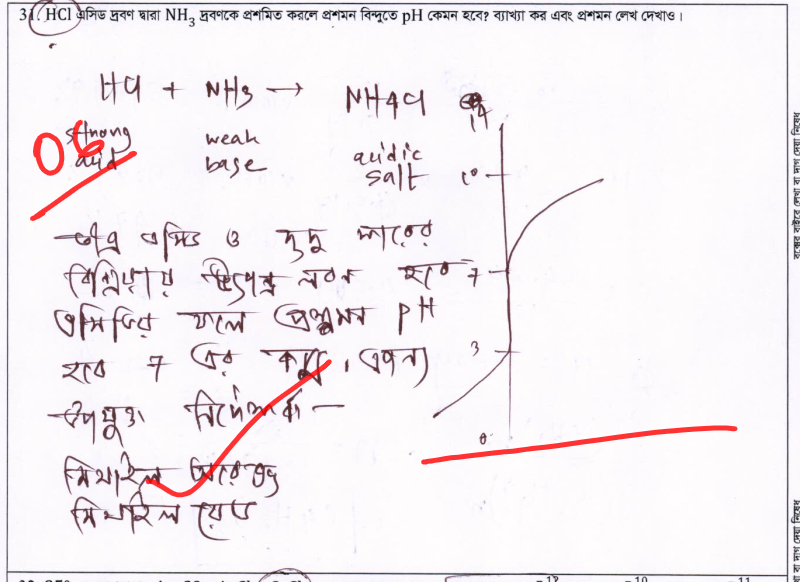 31. HCl এসিড দ্রবণ দ্বারা NH3 দ্রবণকে প্রশমিত করলে প্রশমন বিন্দুতে pH কেমন হবে? ব্যাখ্যা কর এবং প্রশমন লেখ দেখাও।
HCl + NH3 → NH4Cl
14
strong acid weak base acidic salt
06
10
তীব্র এসিড ও মৃদু ক্ষারের
বিক্রিয়ায় উৎপন্ন লবন হবে
7
ফলে প্রশমন pH
হবে 7 এর কম, এজন্য
3
উপযুক্ত নির্দেশক —
0
মিথাইল অরেঞ্জ
মিথাইল রেড
বক্সের বাইরে লেখা বা দাগ দেয়া নিষেধ
বা দাগ দেয়া নিষেধ